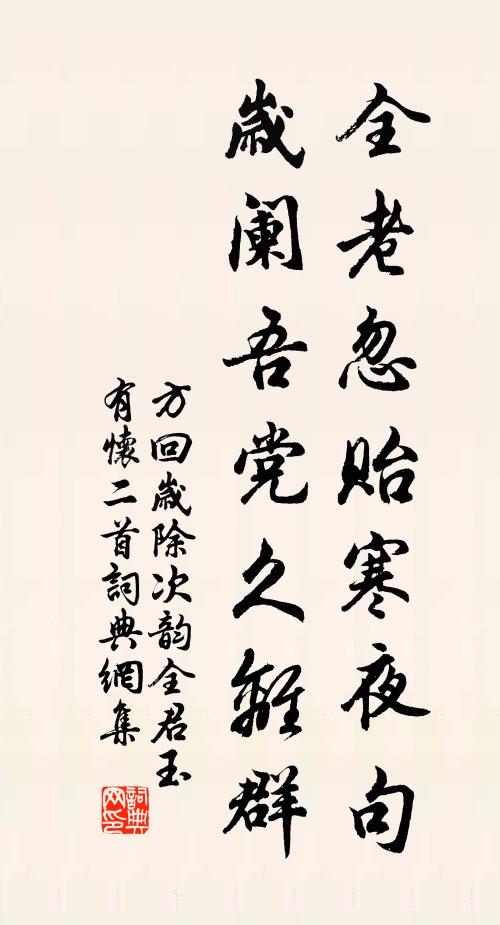 全老忽貽寒夜句
歲阑吾党久離群
方回歲除次韵全君玉
有懷二首詞典網集
詞典
网印